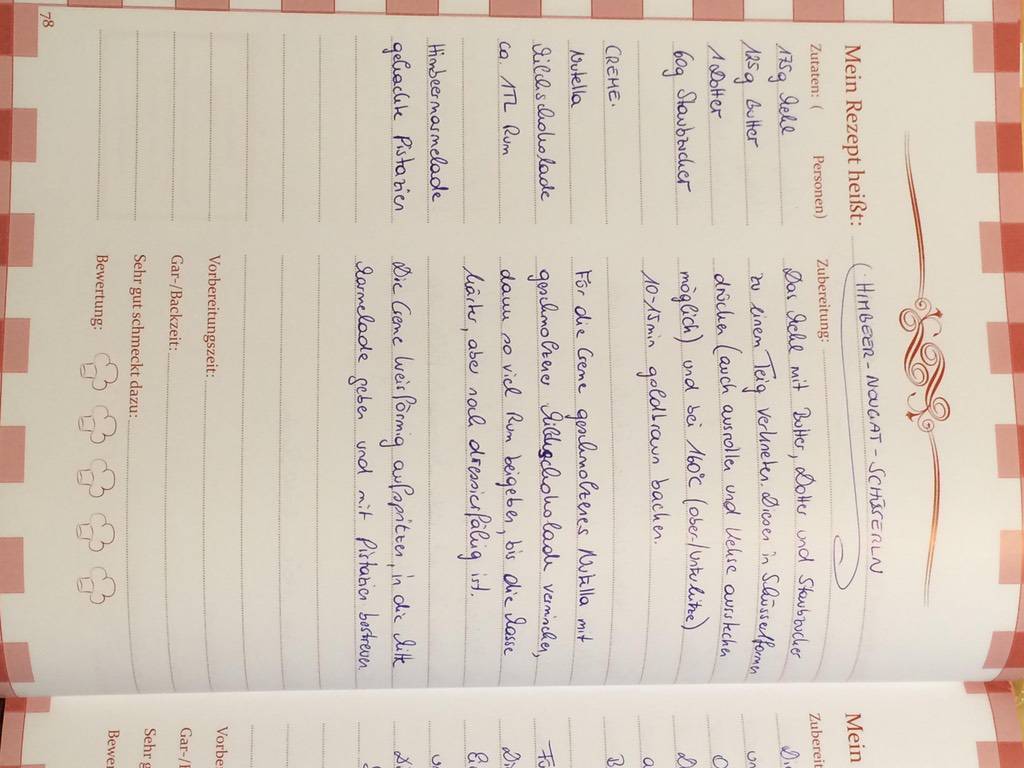 Mein Rezept heißt: HIMBEER-NOUGAT-SCHÜSSERLN
Zutaten: ( Personen)
175g Mehl
125g Butter
1 Dotter
60g Staubzucker
CREME:
Nutella
Milchschokolade
ca. 1TL Rum
Himbeermarmelade
gehackte Pistazien
Zubereitung:
Das Mehl mit Butter, Dotter und Staubzucker
zu einem Teig verkneten. Diesen in Schüsselformen
drücken (auch ausrollen und Kekse ausstechen
möglich) und bei 160°C (ober-/unterhitze)
10-15min goldbraun backen.
Für die Creme geschmolzenes Nutella mit
geschmolzener Milchschokolade vermischen,
dann so viel Rum beigeben, bis die Masse
härter, aber noch dressierfähig ist.
Die Creme kreisförmig aufspritzen, in die Mitte
Marmelade geben und mit Pistazien bestreuen
Vorbereitungszeit:
Gar-/Backzeit:
Sehr gut schmeckt dazu:
Bewertung:
78
Mein
Zubereit
Vorbe
Gar-/
Sehr g
Bewer